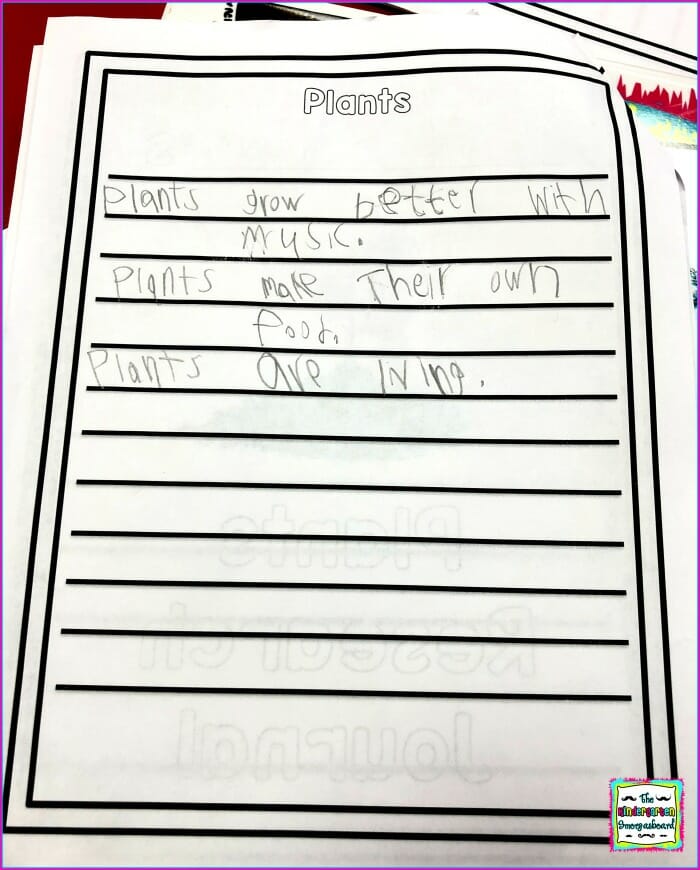 Plants
Plants grow better with
music.
Plants make Their own
food.
Plants are living.
Plants
Research
Journal
The
Kindergarten
Smorgasboard